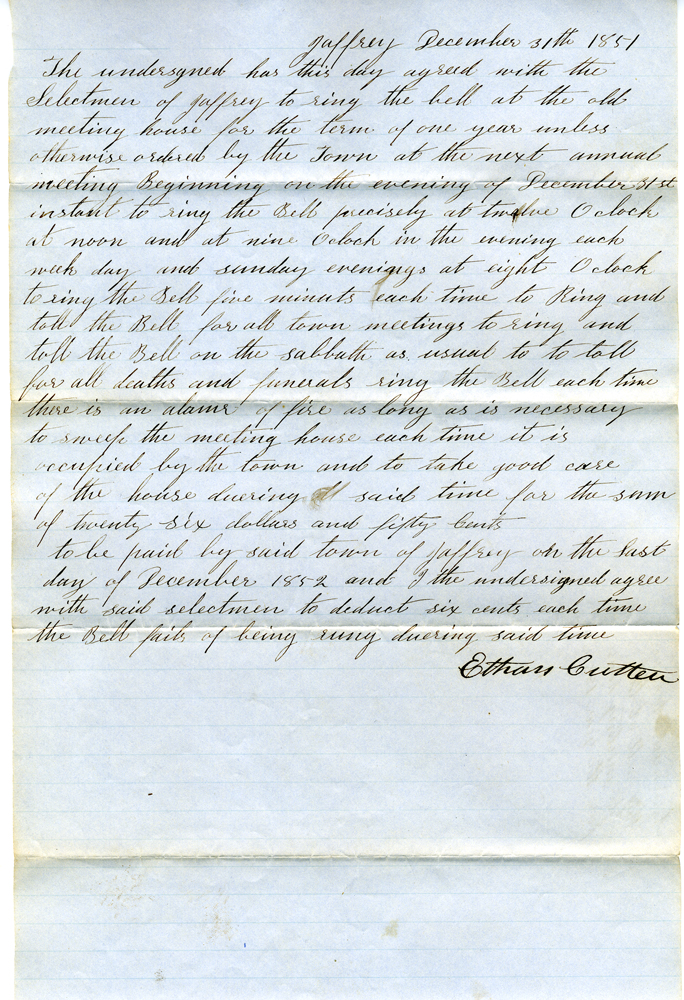 Jaffrey December 31th 1851
The undersgned has this day agreed with the
Selectmen of Jaffrey to ring the bell at the old
meeting house for the term of one year unless
otherwise ordered by the Town at the next annual
meeting Beginning on the evening of December 31st
instant to ring the Bell precisely at twelve O clock
at noon and at nine Oclock in the evening each
week day and sunday evenings at eight O clock
to ring the Bell five minuts each time to Ring and
toll the Bell for all town meetings to ring and
toll the Bell on the sabbath as usual to to toll
for all deaths and funerals ring the Bell each time
there is an alamr of fire as long as is necessary
to sweep the meeting house each time it is
occupied by the town and to take good care
of the house duering all said time for the sum
of twenty six dollars and fifty Cents
to be paid by said town of Jaffrey on the last
day of December 1852 and I the undersigned agree
with said selectmen to deduct six cents each time
the Bell fails of being rung duering said time
Ethan Cutter